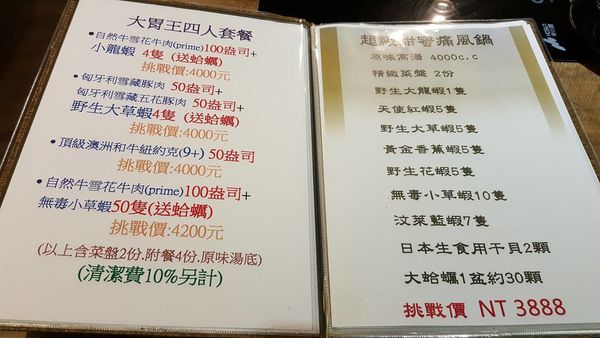 大胃王四人套餐
•自然牛雪花牛肉(prime)100盎司+
小龍蝦 4隻 (送蛤蠣)
挑戰價:4000元
•匈牙利雪藏豚肉 50盎司+
匈牙利雪藏五花豚肉 50盎司+
野生大草蝦4隻 (送蛤蠣)
挑戰價:4000元
•頂級澳洲和牛紐約克(9+) 50盎司
挑戰價:4000元
•自然牛雪花牛肉(prime)100盎司+
無毒小草蝦50隻(送蛤蠣)
挑戰價:4200元
(以上含菜盤2份.附餐4份.原味湯底)
(清潔費10%另計)
超級甜蜜痛風鍋
原味高湯 4000c.c
精緻菜盤 2份
野生大龍蝦1隻
天使紅蝦5隻
野生大草蝦5隻
黃金香蕉蝦5隻
野生花蝦5隻
無毒小草蝦10隻
汶萊藍蝦7隻
日本生食用干貝2顆
大蛤蠣1盆約30顆
挑戰價 NT 3888